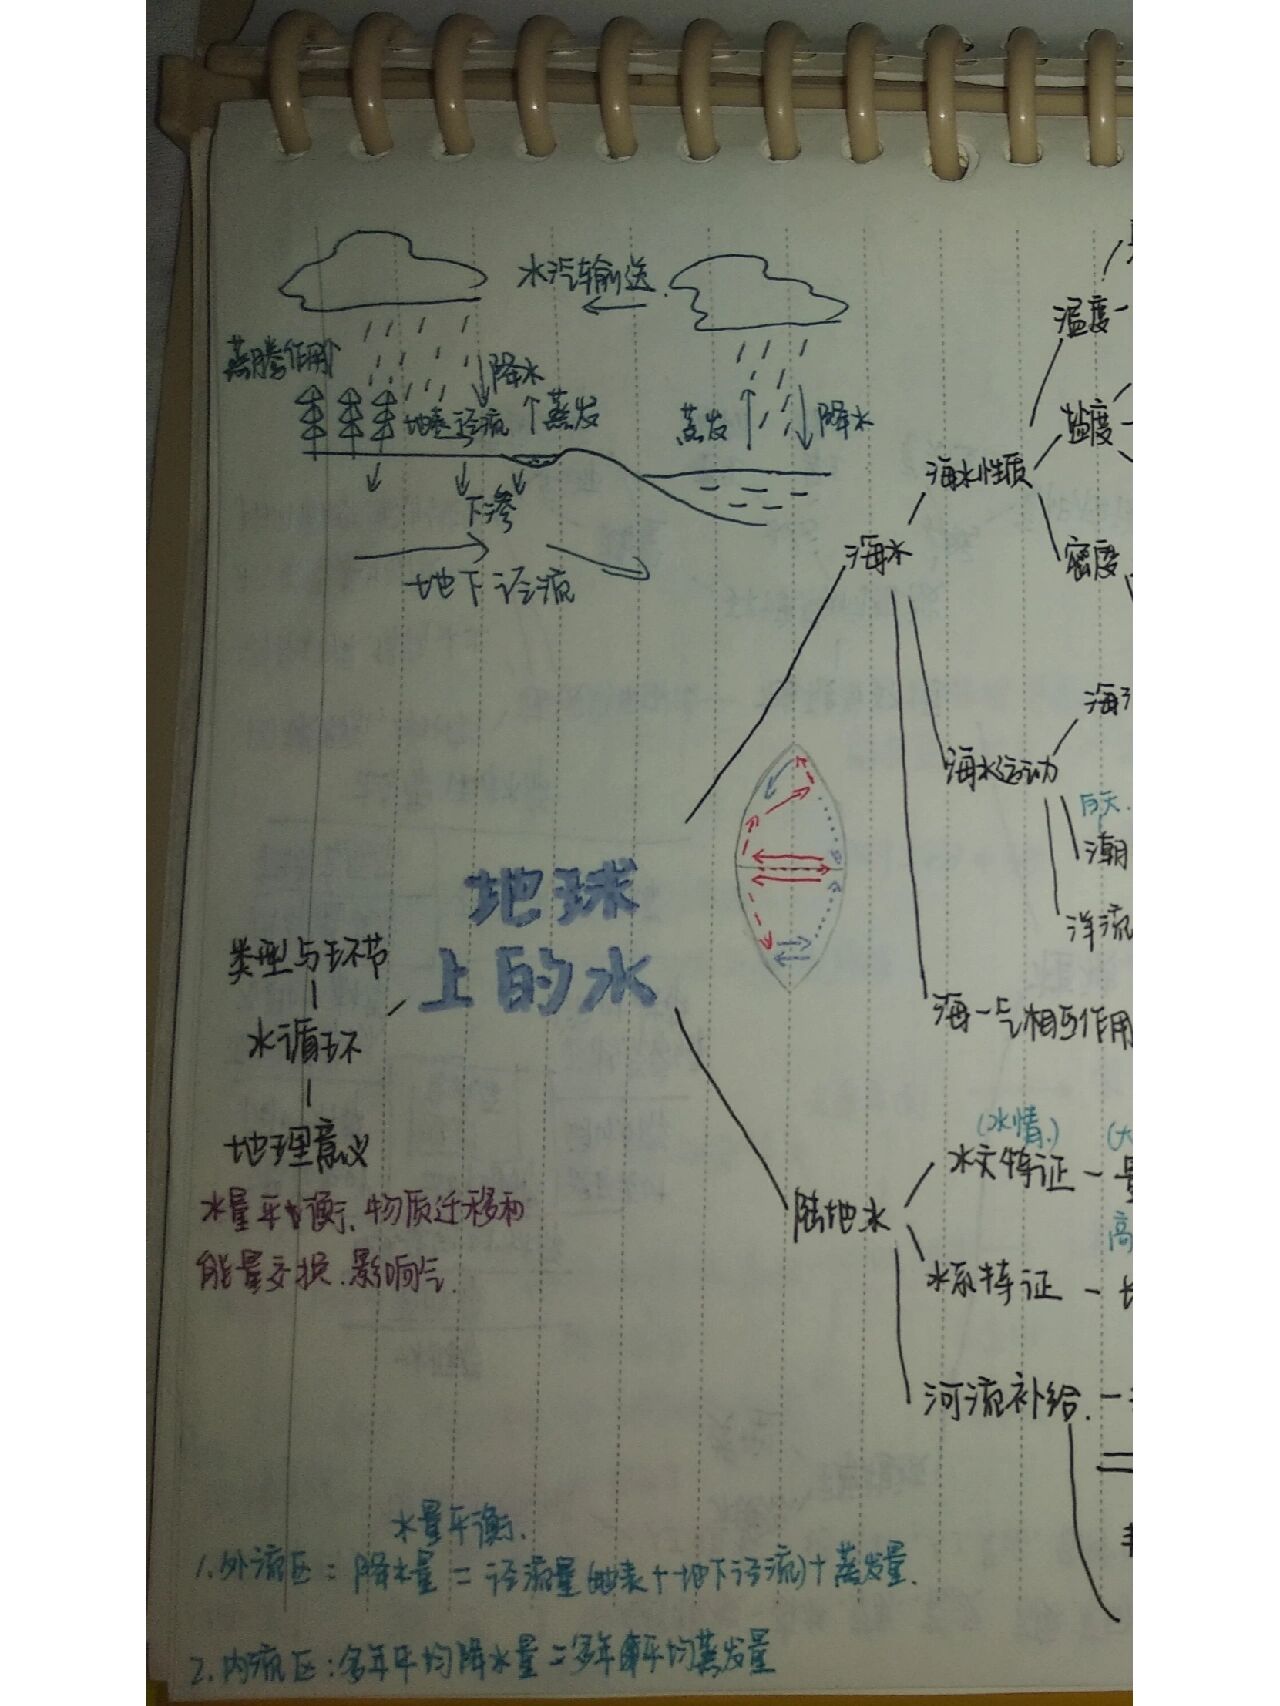 水汽输送
蒸腾作用
降水
地表径流
蒸发
蒸发
降水
下渗
地下径流
温度
盐度
海水性质
密度
海水
海水运动
潮
洋流
海-气相互作用
地球
上的水
类型与环节
水循环
地理意义
水量平衡、物质迁移和
能量交换.影响气
(水情.)
水文特证
陆地水
水系特证
高
河流补给
水量平衡.
1.外流区:降水量=径流量(地表+地下径流)+蒸发量.
2.内流区:多年平均降水量=多年平均蒸发量